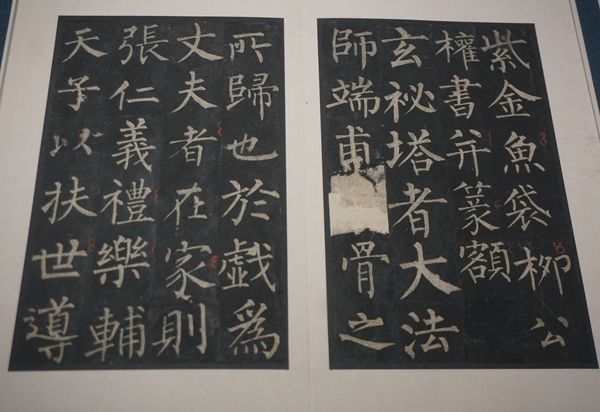 紫金魚袋柳公
權書并篆額
玄祕塔者大法
師端甫骨之
所歸也於戲為
丈夫者在家則
張仁義禮樂輔
天子以扶世導